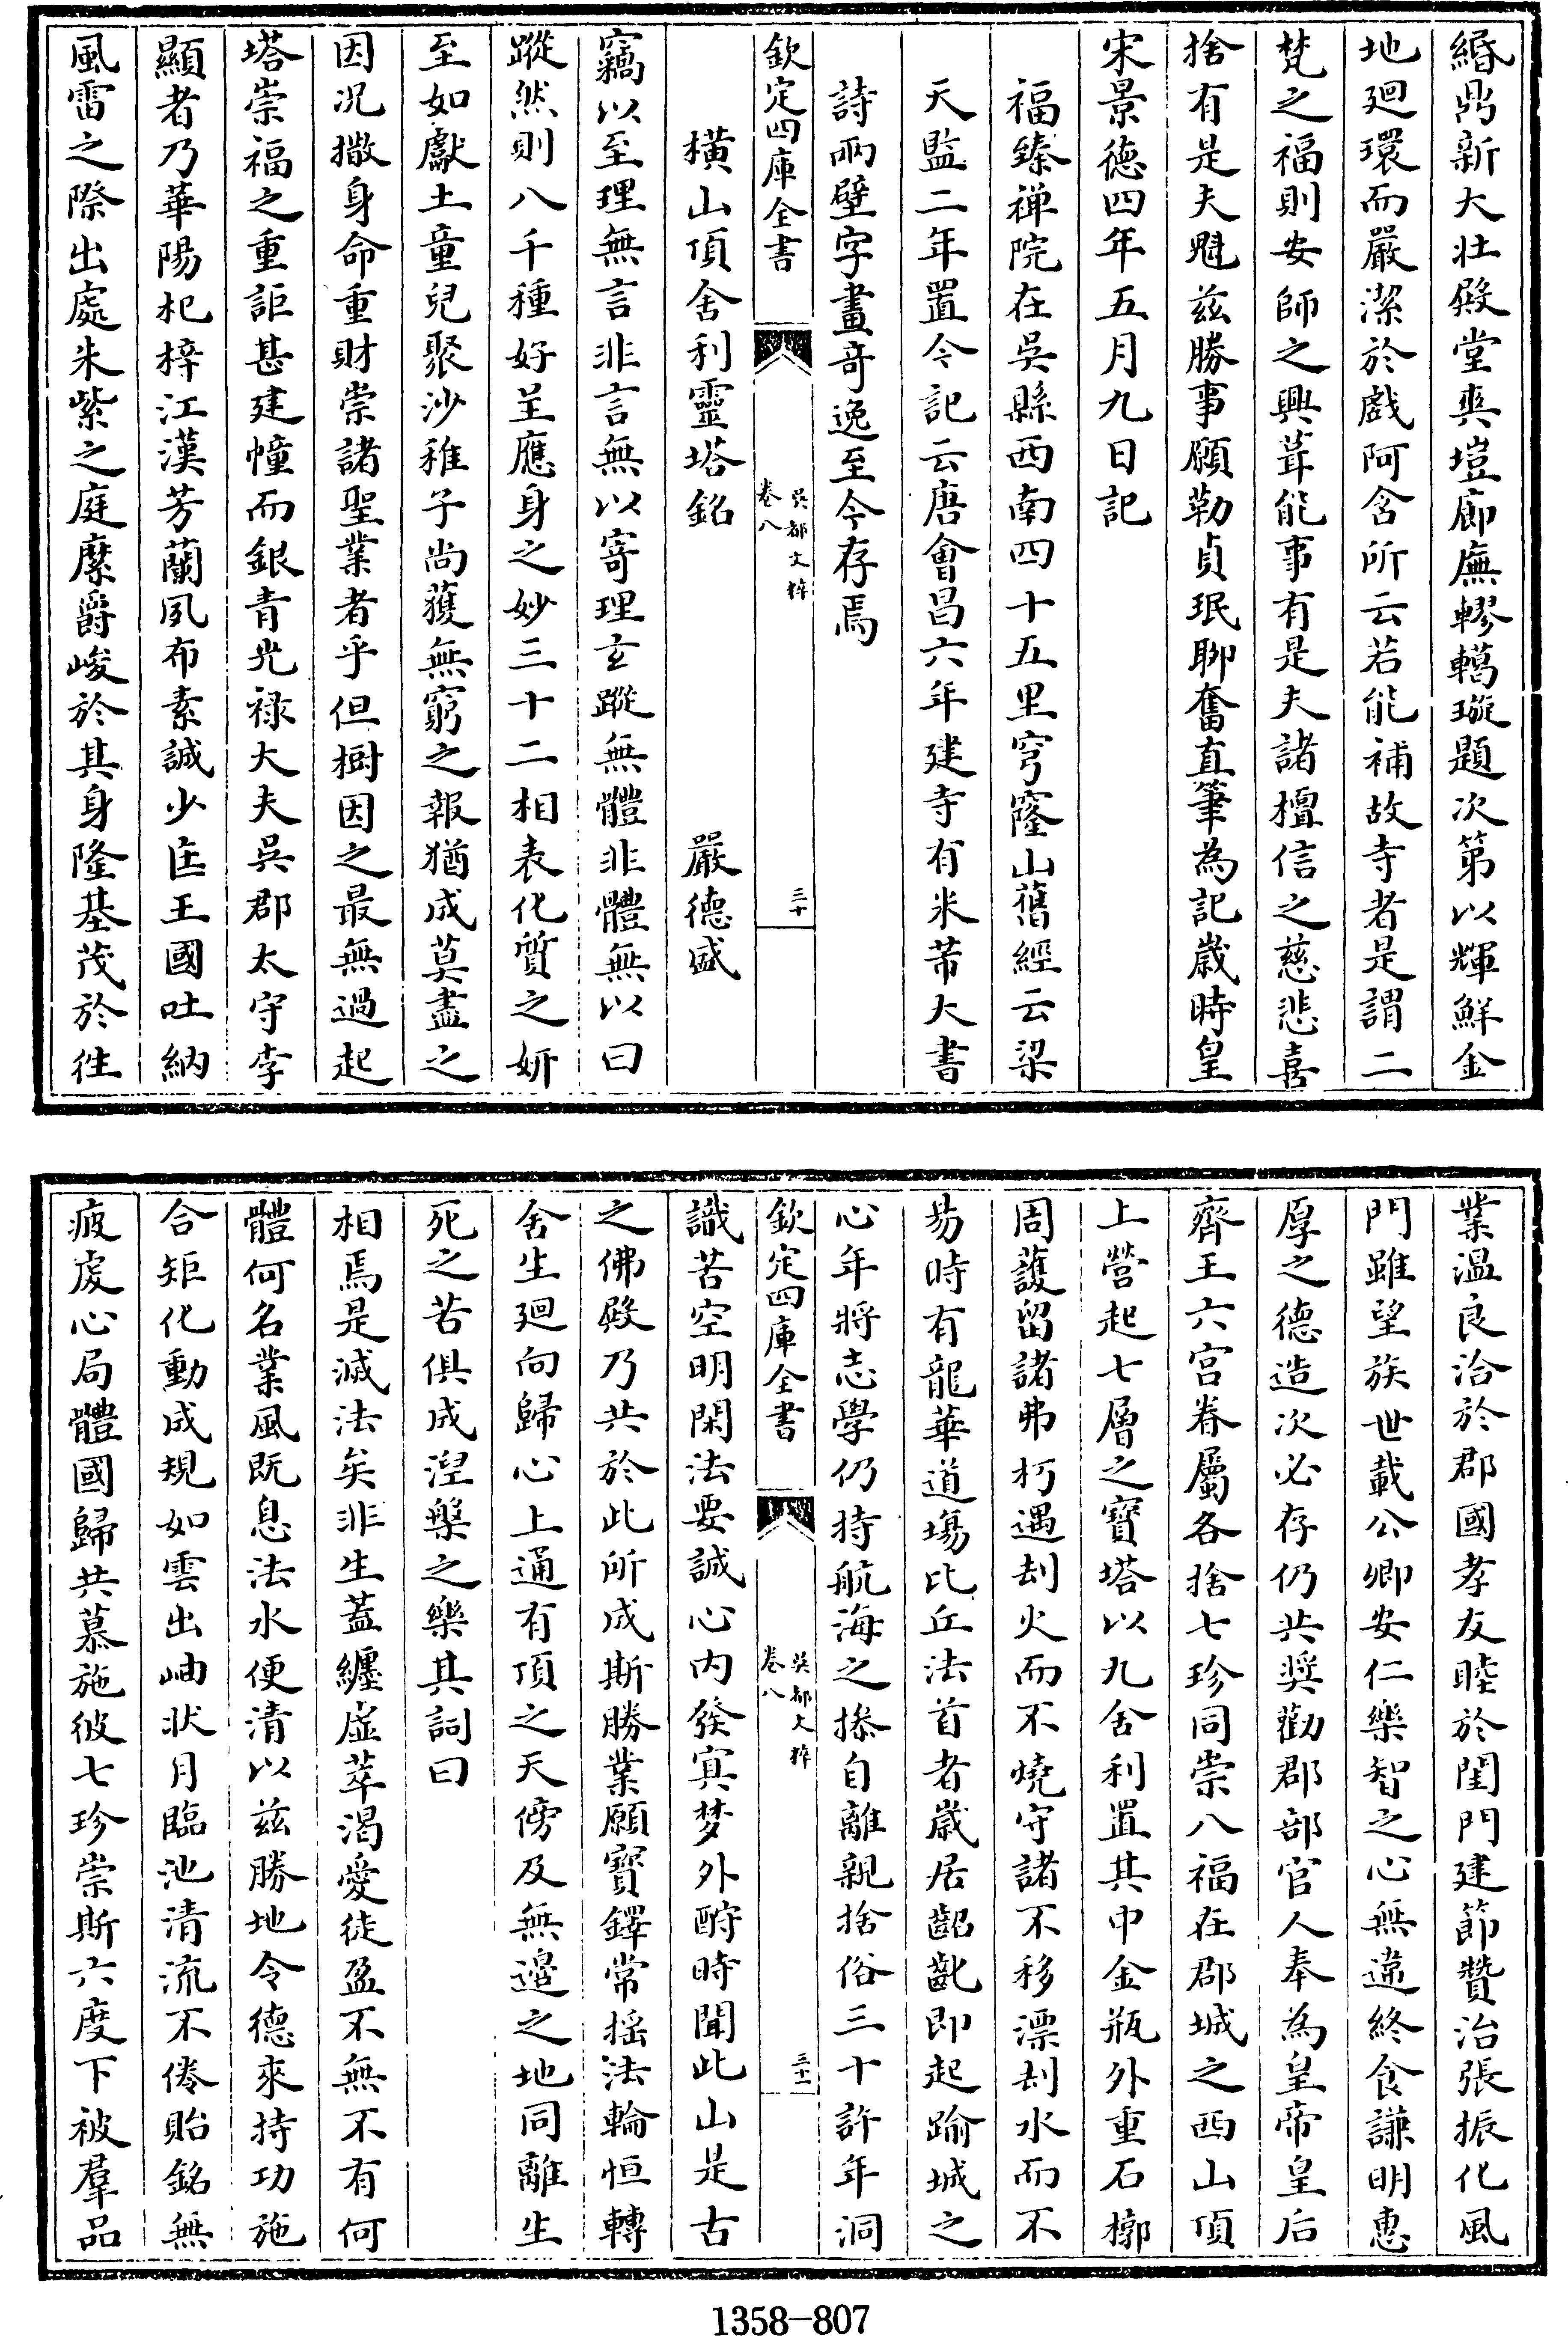 緡鼎新大壯殿堂爽塏廊廡轇轕璇題次第以輝鮮金
地廻環而嚴潔於戲阿含所云若能補故寺者是謂二
梵之福則安師之興葺能事有是夫諸檀信之慈悲喜
捨有是夫魁兹勝事願勒貞珉聊奮直筆為記歲時皇
宋景德四年五月九日記
福臻禅院在吳縣西南四十五里穹窿山舊經云梁
天監二年置今記云唐會昌六年建寺有米芾大書
詩兩壁字畫奇逸至今存焉
欽定四庫全書
吳都文粹
卷八
三十
橫山頂舍利靈塔銘 嚴德盛
竊以至理無言非言無以寄理玄蹤無體非體無以曰
蹤然則八千種好呈應身之妙三十二相表化質之妍
至如獻土童兒聚沙稚子尚獲無窮之報猶成莫盡之
因况撒身命重財崇諸聖業者乎但樹因之最無過起
塔崇福之重詎甚建幢而銀青光禄大夫吳郡太守李
顯者乃華陽杞梓江漢芳蘭夙布素誠少匡王國吐納
風雷之際出處朱紫之庭縻爵峻於其身隆基茂於徃
業温良洽於郡國孝友睦於閨門建節贊治張振化風
門雖望族世載公卿安仁樂智之心無違終食謙明惠
厚之德造次必存仍共奬勸郡部官人奉為皇帝皇后
齊王六宫眷屬各捨七珍同崇八福在郡城之西山頂
上營起七層之寶塔以九舍利置其中金瓶外重石槨
周䕶留諸弗朽遇刦火而不燒守諸不移漂刦水而不
易時有龍華道塲比丘法首者歲居齠齔即起踰城之
心年將志學仍持航海之操自離親捨俗三十許年洞
欽定四庫全書
吳都文粹
卷八
三十一
識苦空明閑法要誠心内發冥梦外酧時聞此山是古
之佛殿乃共於此所成斯勝業願寶鐸常揺法輪恒轉
舍生廻向歸心上通有頂之天傍及無邉之地同離生
死之苦俱成湼槃之樂其詞曰
相焉是滅法矣非生蓋纏虚萃渴愛徒盈不無不有何
體何名業風既息法水便清以兹勝地令德來持功施
合矩化動成規如雲出岫狀月臨池清流不倦貽銘無
疲䖍心局體國歸共慕施彼七珍崇斯六度下被羣品
1358—807